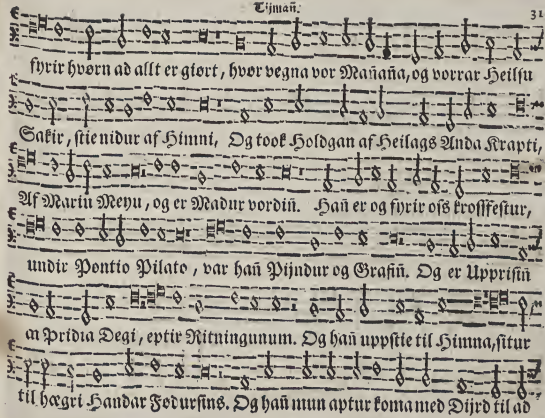 Tijmañ.
31
fyrir hvørn ad allt er giørt, hvør vegna vor Mañaña, og vorrar Heilsu
Sakir, stie nidur af Himni, Og took Holdgan af Heilags Anda Krapti,
Af Mariu Meyu, og er Madur vordiñ. Hañ er og fyrir oss krossfestur,
undir Pontio Pilato, var hañ Pijndur og Grafiñ. Og er Upprisiñ
an Þridia Degi, eptir Ritningunum. Og hañ uppstie til Himna, situr
til hægri Handar Fodursins. Og hañ mun aptur koma med Dijrd til ad